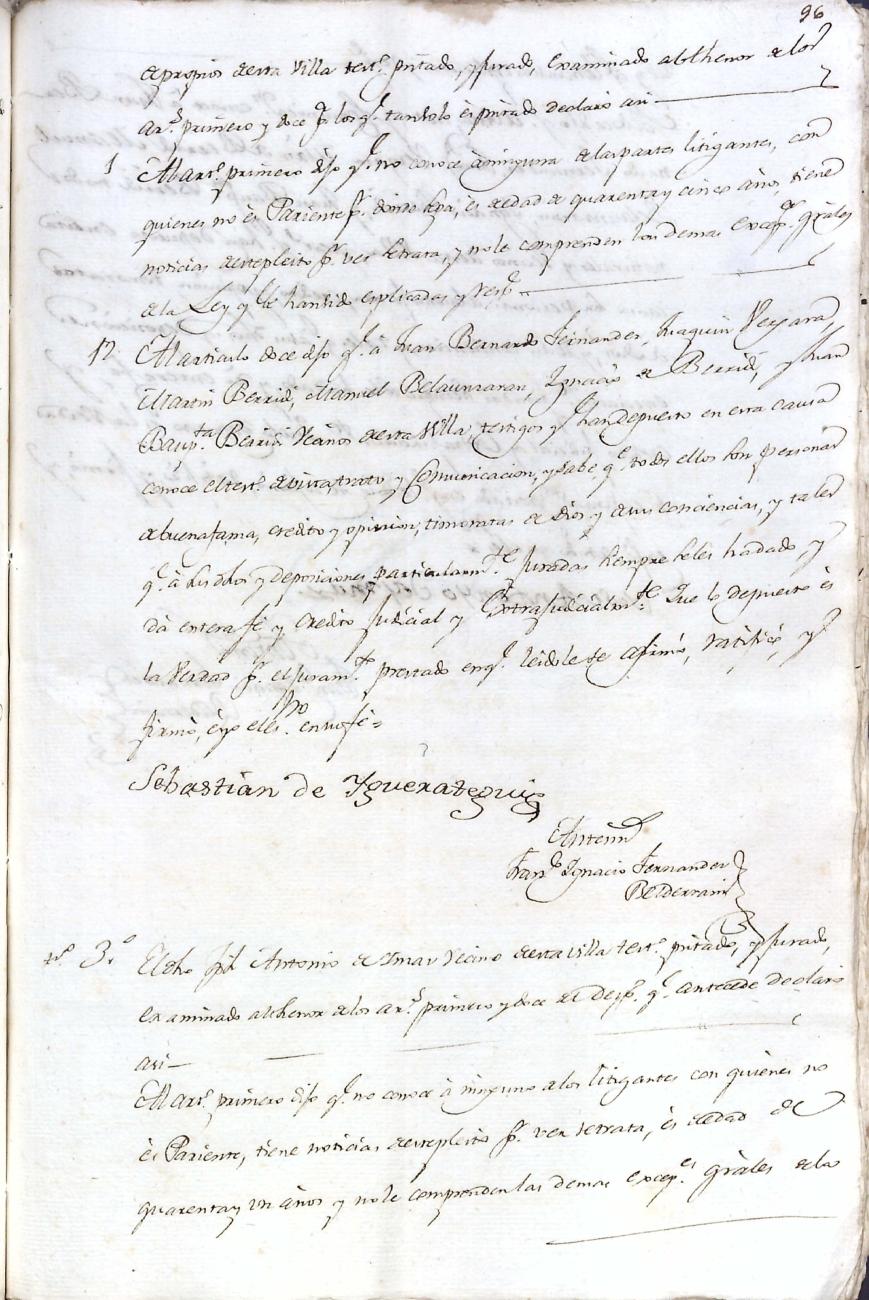 96
de propios desta Villa test.º pñtado, y jurado, examinado al thenor de los
ar.s primero y doce p.r los q.e tansolo és pñtado declaró asi
1 Al ar.º primero dijo q.e no conoce à ninguna de las partes litigantes, con
quienes no és Pariente p.r donde sepa, es de edad de quarenta y cinco años, tiene
noticias de este pleito p.r ver se trata, y no le comprenden las demas excep.s grãles
de la Ley q.e le han sido esplicadas y resp.e
12 Al articulo doce dijo q.e à Juan Bernardo Fernandez, Juaquin Vergara,
Martin Berridi, Manuel Belaunzaran, Ignacio de Berridi, y Juan
Baup.ta Berridi Vecinos de esta Villa, testigos q.e han depuesto en esta causa
conoce el test.º de vista, trato y Comunicacion, y sabe q.e todos ellos son personas
de buena fama, credito y opinion, timoratas de Dios y de sus conciencias, y tales
q.e à sus dhos y deposiciones particularm.te Juradas siempre se les ha dado, y
dà entera fé y credito Judicial y Extrajudicialm.te Que lo depuesto és
la Verdad p.r el juram.to prestado en q.e leidole se afirmò, ratificò, y
firmò, è yo el es.no en su fé=
Sebastian de Yguerategui
Antemi
Fran.co Ignacio Fernandez
Belderrain
t.º 3.º El dho Jph Antonio de Imaz Vecino desta Villa test.º pñtado, y jurado,
examinado al thenor de los ar.s primero y doce de el desp.º q.e antecede declaró
asi
Al ar.º primero dijo q.e no conoce à ninguno de los litigantes con quienes no
és Pariente, tiene noticias de este pleito p.r ver se trata, és de edad de
quarenta y un años y no le comprenden las demas excep.s grãles de la